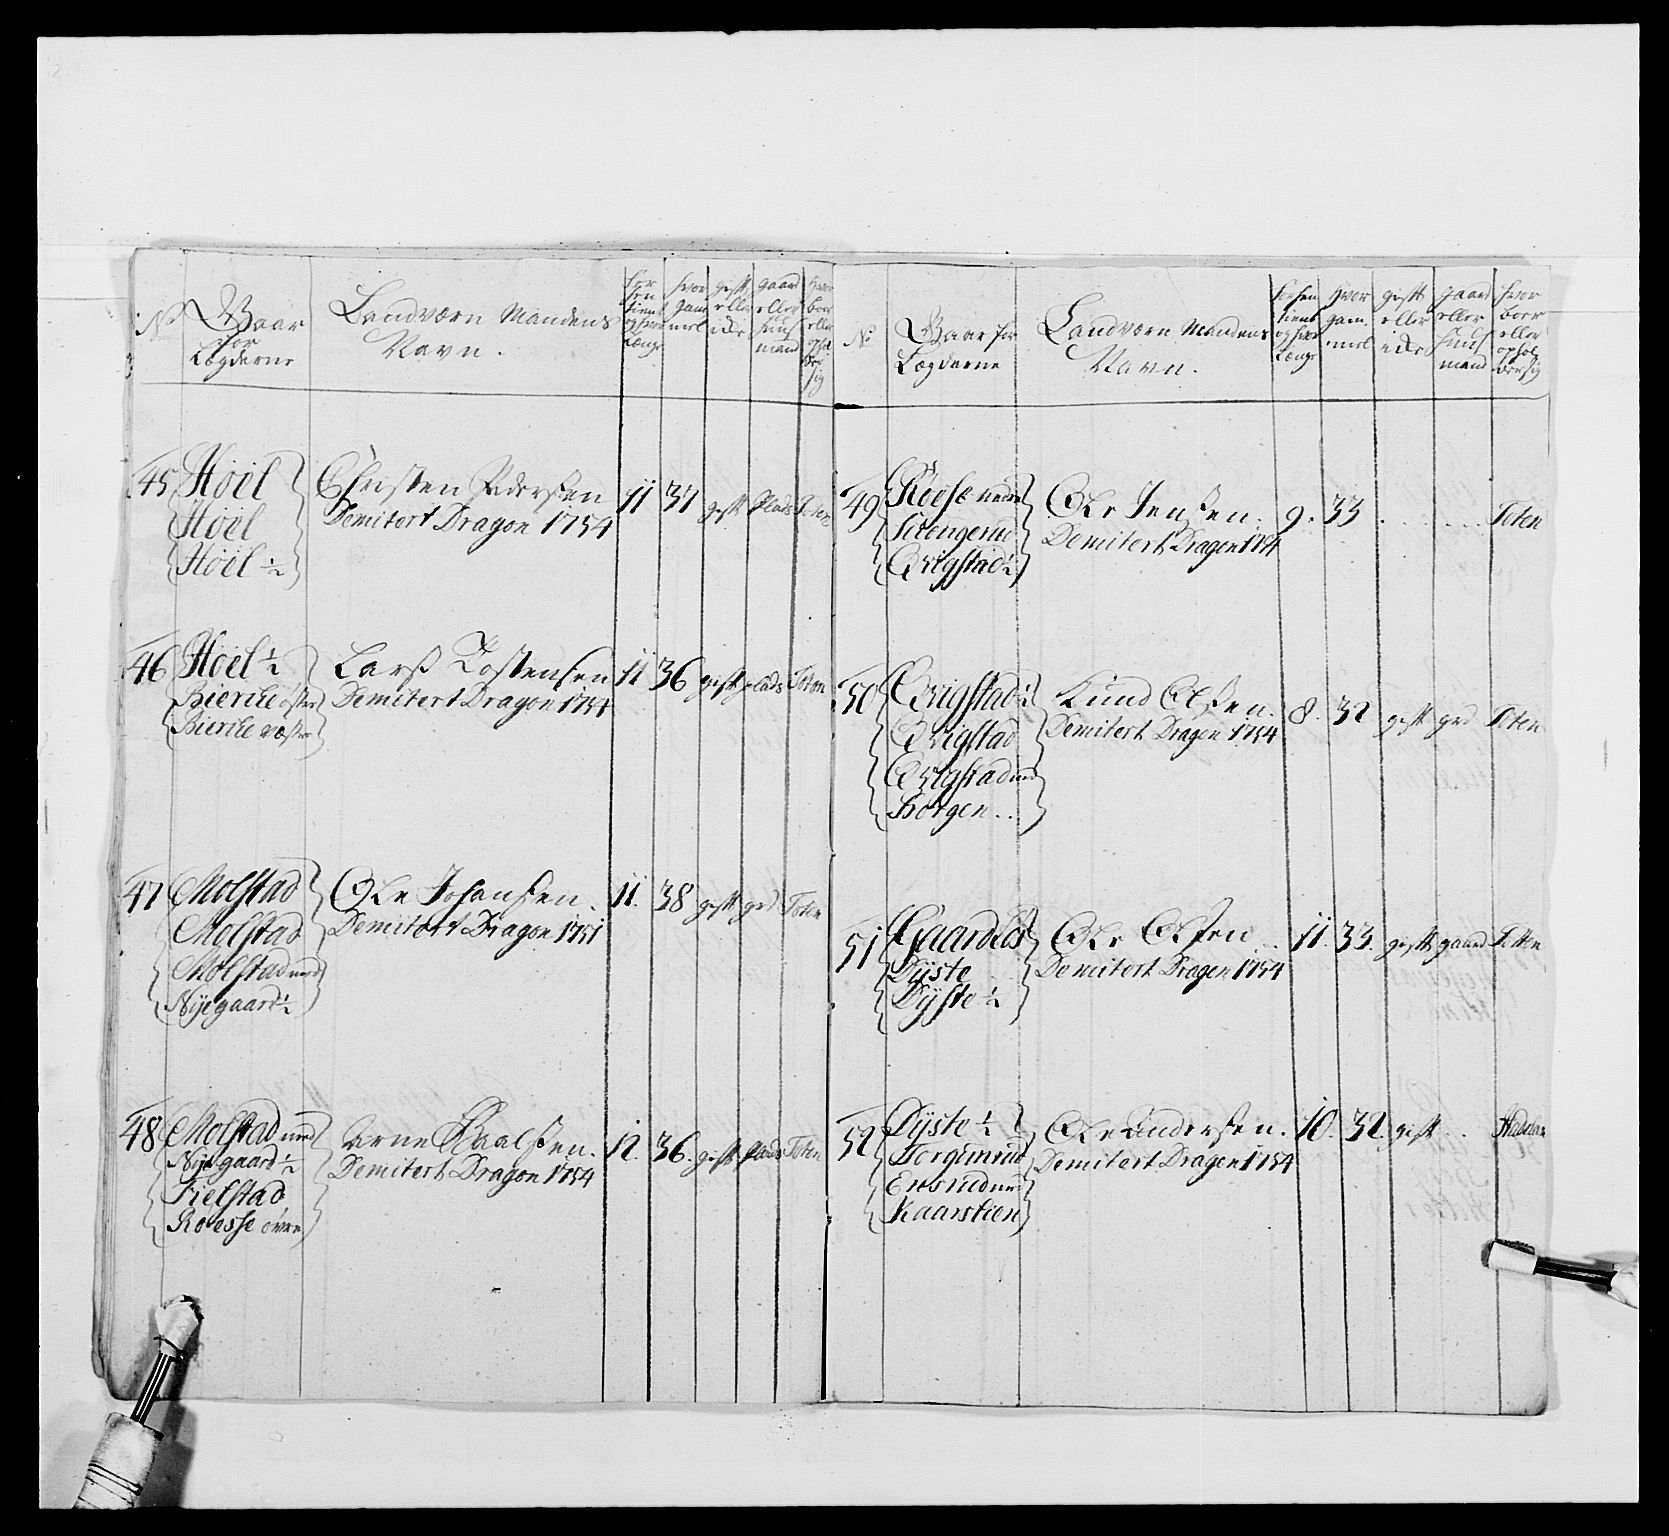 No
Gaar
for
Lægderne
Landværn Mandens
Navn.
hvor
gam
mel
gift
eller
ide
gaard
eller
huus
mand
45 Høel
Høel
Høel ½
Christen Pedersen
Demitert Dragon 1754
11 37 gift Plads Toten
46 Høel ½
Bierke øster
Bierke væster
Lars Tostensen
Demitert Dragon 1754
11 36 gift plads Toten
47 Molstad
Molstad
Molstad ned
Nÿegaard ½
Ole Johansen.
Demitert Dragon 1751
11. 38 gift grd Toten
48 Molstad ned
Nÿe gaard ½
Fielstad
Roesse øvre
Arne Paalsen.
Demitert Dragon 1754
12. 36. gift plads Toten
No
Gaar for
Lægderne
Landværn Mandens
Navn.
hvor
gam-
mel
gift
eller
ide
gaard
eller
huus
mand
hvor
boer
eller
ophol
der sig
49 nedre
Qvigstad ½
Ole Jensen.
Demitert Dragon 1754
9. 33 Toten
50 Qvigstad ½
Qvigstad
Qvigstad ned
Borgen..
Knud Olsen.
Demitert Dragon 1754
8. 32 gift grd Toten
51 Gaardløs
Dÿste
Dÿste ½
Ole Olsen
Demitert Dragon 1754
11. 33. gift gaard Totten
52 Dÿste ½
Torgunrud
Ensrud ned
Kaarstien
Ole Andersen.
Demitert Dragon 1754
10. 32. gift